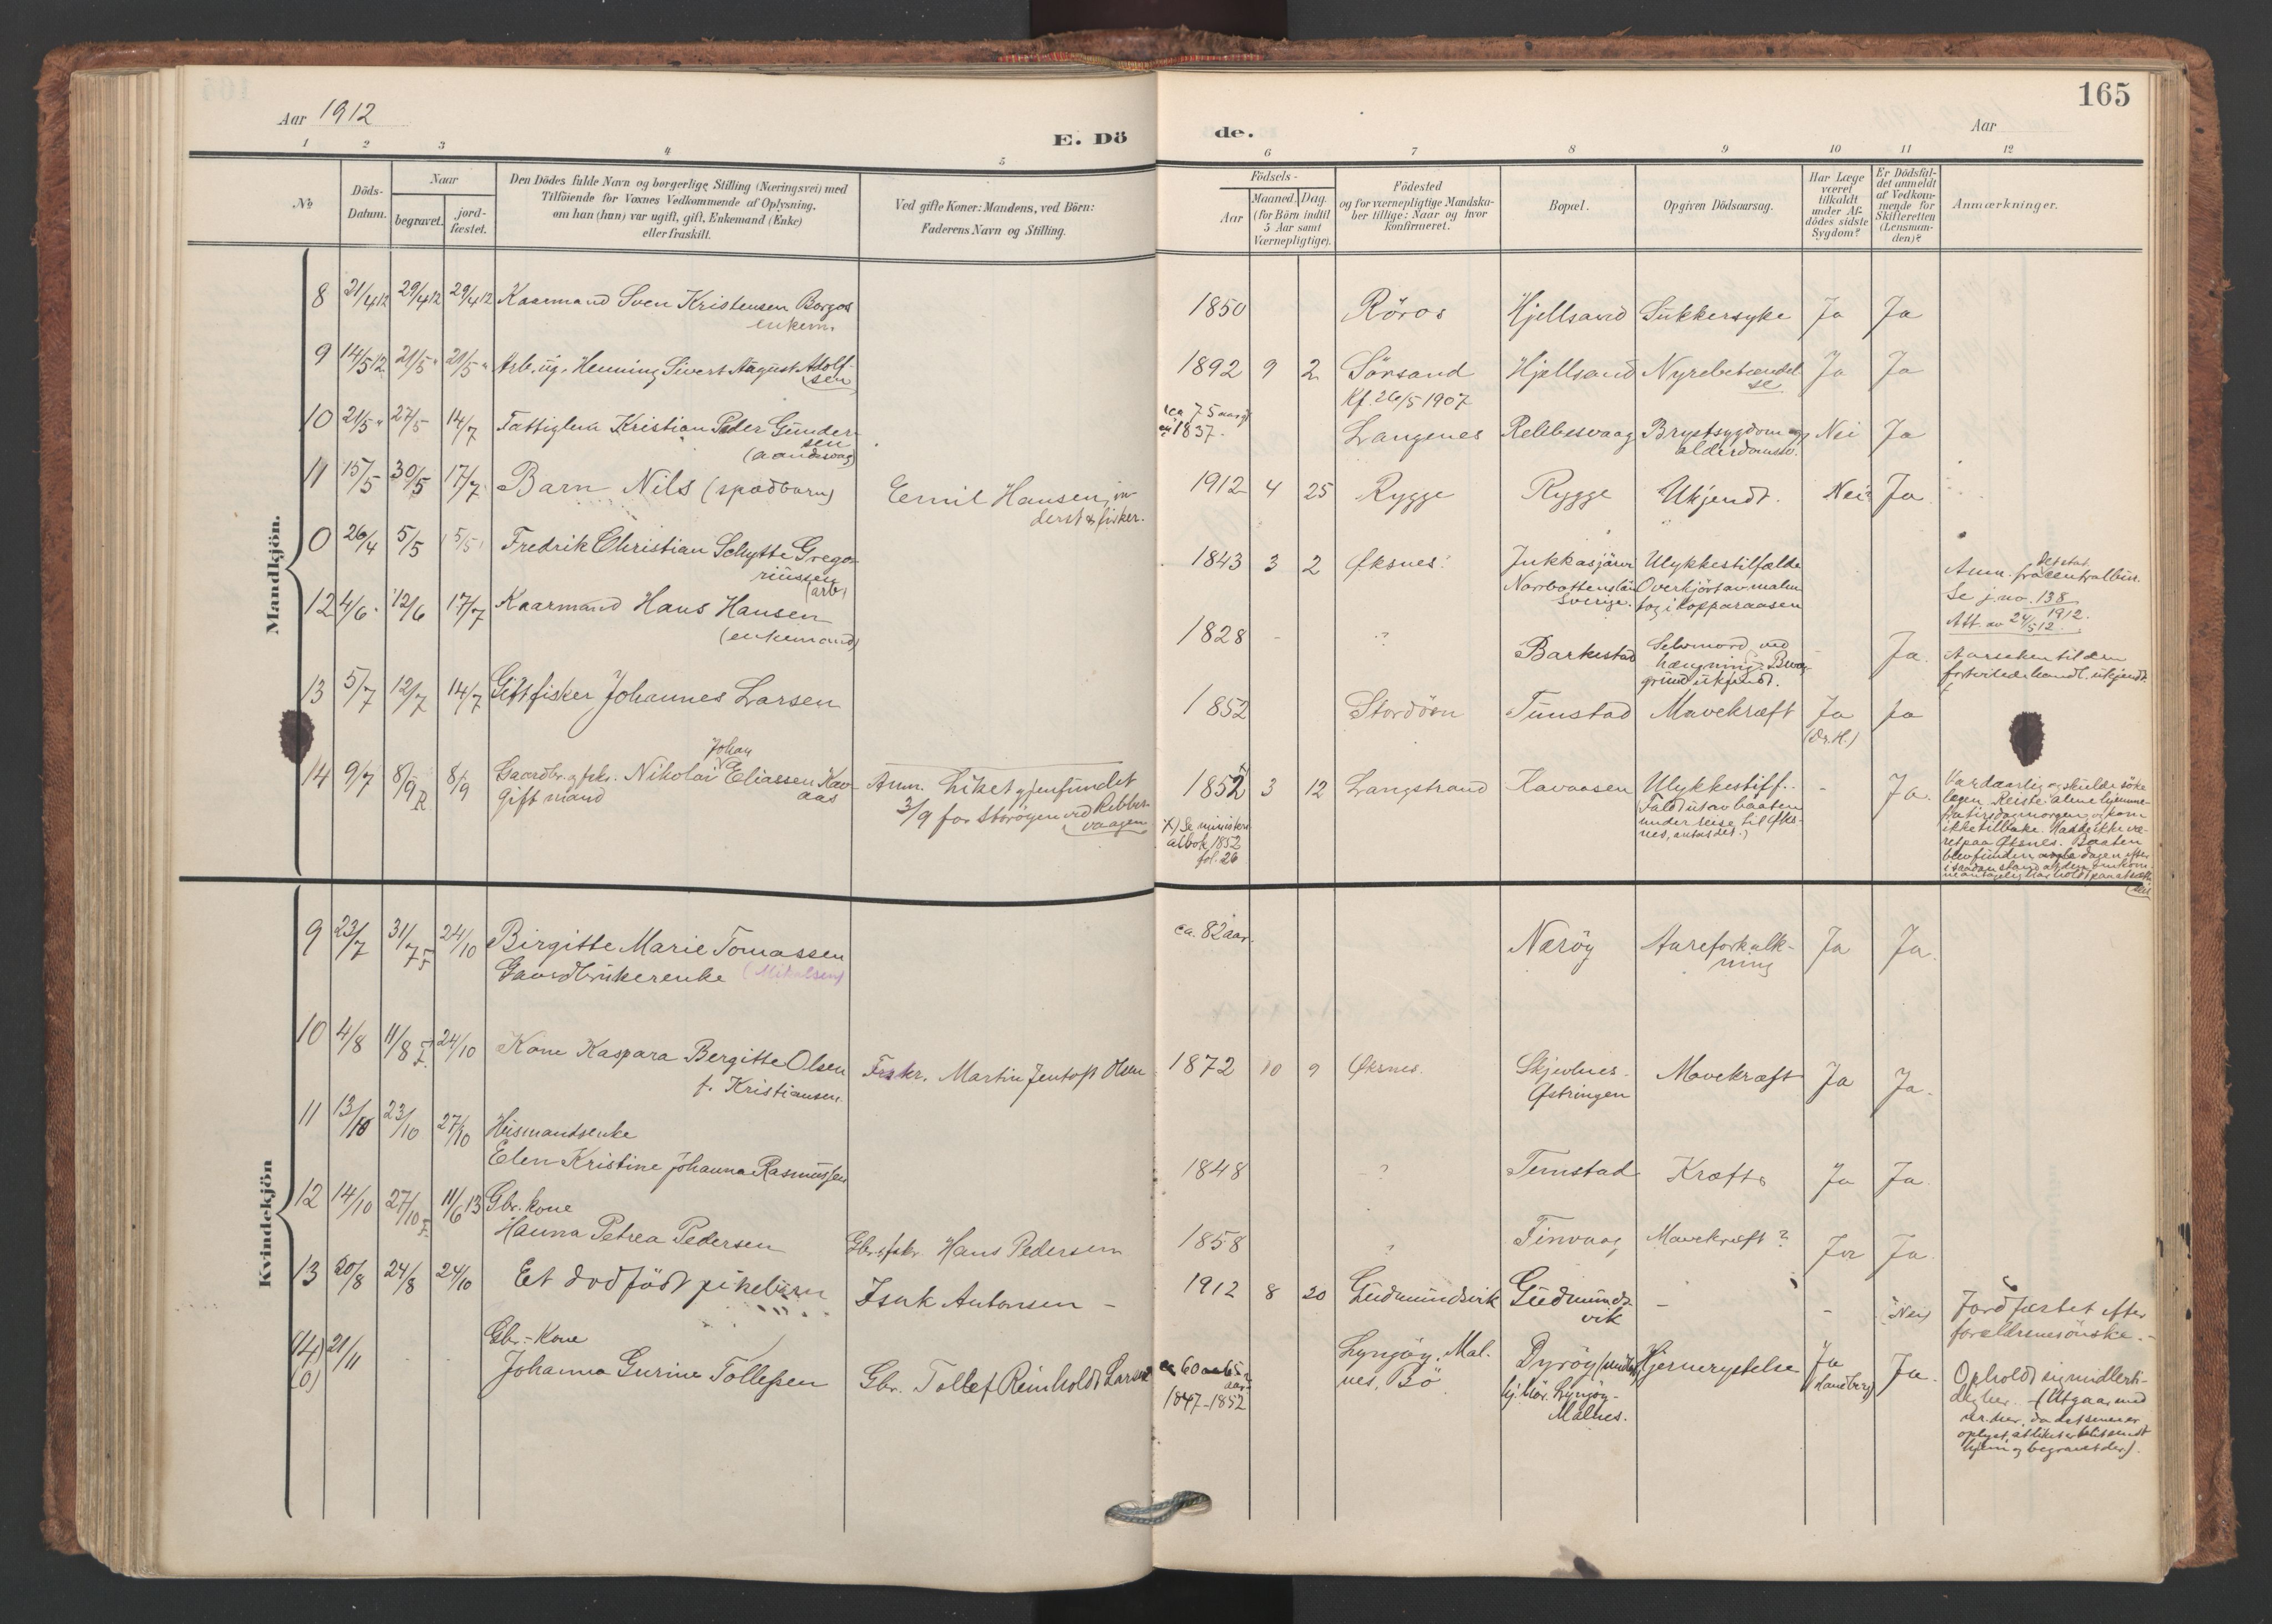 165
Aar 1912
E. Dö
de.
Aar
1 2 3 4 5 6 7 8 9 10 11 12
No
Döds-
Datum.
Naar
begravet.
jord-
fæstet.
Den Dödes fulde Navn og borgerlige Stilling (Næringsvei) med
Tilföiende for Voxnes Vedkommende af Oplysning,
om han (hun) var ugift, gift, Enkemand (Enke)
eller fraskilt.
Ved gifte Koner: Mandens, ved Börn:
Faderens Navn og Stilling.
Födsels-
Aar
Maaned. Dag.
(for Börn indtil
5 Aar samt
Værnepligtige).
Födested
og for værnepligtige Mandska-
ber tillige: Naar og hvor
konfirmeret.
Bopæl.
Opgiven Dödsaarsag.
Har Læge
været
tilkaldt
under Af-
dödes sidste
Sygdom?
Er Dödsfal-
det anmeldt
af Vedkom-
mende for
Skifteretten
(Lensman-
den)?
Anmærkninger.
Mandkjön.
8 21/4 12 29/4 12 29/4 12 Kaarmand Sven Kristensen Borgos
enkem.
1850 Röros Hjellsand Sukkersyke Ja Ja
9 14/5 12 21/5 " 21/5 " Arb. ug. Henning Sivert August Adolf-
sen
1892 9 2 Sörsand Hjellsand Nyrebetændel
se Ja Ja
Kf. 26/5 1907
10 21/5 " 27/5 14/7 Fattiglem Kristian Peder Gunder
sen
(aandsvag)
ca 75 aar
1837. Langenes Rebbesvaag Brystsygdom og
alderdomssv. Nei Ja
11 15/5 30/5 17/7 Barn Nils (spædbarn) Eemil Hansen, in-
derst & fisker.
1912 4 25 Rygge Rygge Ukjendt. Nei Ja
0 26/4 5/5 (5/5) Fredrik Christian Schytte Grego-
riussen
(arb)
1843 3 2 Øksnes. Jukkasjärvi
Norrbottenslän
Sverige. Ulykkestilfælde
Overkjört av malm
tog i Kopparaasen
Anm. fra det stat. centralbur.
Se j.no. 138
1912.
Att. av 24/5 12.
12 4/6 12/6 17/7 Kaarmand Hans Hansen
(enkemand)
1828 - ? Barkestad Selvmord ved
hængning. Bevæg-
grund ukjendt. Ja. Aarsaken til den
fortvilede handl. ukjendt.
13 5/7 12/7 14/7 Gift fisker Johannes Larsen
1852 Stordöen Tunstad Mavekræft Ja
(Dr. H.) Ja
14 9/7 8/9 R 8/9 Gaardbr. og fsk. Nikolai Johan Eliassen Kav-
aas
Gift mand
Anm. Liket gjenfundet
3/9 for Störöyen ved Rebbes-
vaagen
1852 3 12 Langstrand Kavaasen Ulykkestilf..
(Fald ut av baaten
under reise til Øks-
nes, antas det.) - Ja.
X) Se minister
albok 1852
fol. 26
Var daarlig og skulde söke
lægen. Reiste alene hjemme-
fra tirsdag morgen og kom
ikke tilbake. Hadde ikke væ-
ret paa Øksnes. Baaten
blev funden dagen efter
Kvindekjön
9 23/7 31/7 F 24/10 Birgitte Marie Tomassen
Gaardbrukerenke (Mikalsen)
ca. 82 aar. Næröy Aareforkalk-
ning Ja Ja.
10 4/8 11/8 F. 24/10 Kone Kaspara Bergitte Olsen
f. Kristiansen
Fisker. Martin Jentoft Olsen
1872 10 9 Øksnes. Skjevlnes
Østringen Mavekræft Ja Ja.
11 13/10 23/10 27/10 Husmandsenke
Elen Kristine Johanna Rasmussen
1848 ? Tunstad Kræft Ja Ja.
12 14/10 27/10 F. 11/6 13 Gbr. kone
Hanna Petrea Pedersen
Gbr. & fskr. Hans Pedersen
1858 ? Tinvaag Mavekræft? Ja Ja.
13 20/8 24/8 24/10 Et dödfödt pikebarn Isak Antonsen -
1912 8 20 Gudmundsvik Gudmunds-
vik - - Nei Jordfæstet efter
forældrenes önske. -
(14) 21/11
(0)
Gbr.-Kone
Johanna Gurine Tollefsen Gbr. Tollef Reinholdt Larsen
ca 60 a 65
aar
1847-1852
Lyngöy, Mal-
nes, Bö
Dyröy
Lyngöy-
Malnes.
Hjernerystelse Ja
(Sandberg) Ja.
Opholdt sig midlerti-
dig her. - (Utgaar med
nr. her, da det senere er
oplyst, at liket er blit sendt
hjem og begravet der).